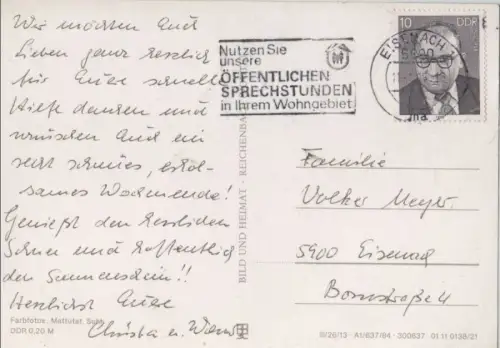 Wir möchten Euch
Lieben ganz herzlich
für Eure schnelle
Hilfe danken und
wünschen Euch ein
recht schönes, erhol-
sames Wochenende!
Genießt den herrlichen
Schnee und hoffentlich
den Sonnenschein!!
Herzlichst Eure
Christa u.
Farbfotos: Mattutat, Suhl
DDR 0,20 M
BILD UND HEIMAT · REICHENBA
Nutzen Sie
unsere
ÖFFENTLICHEN
SPRECHSTUNDEN
in Ihrem Wohngebiet
EISENACH
5900
10 DDR
Familie
Volker Meyer
5900 Eisenach
Bornstraße 4
A1/637/84 · 300637 01 11 0138/21